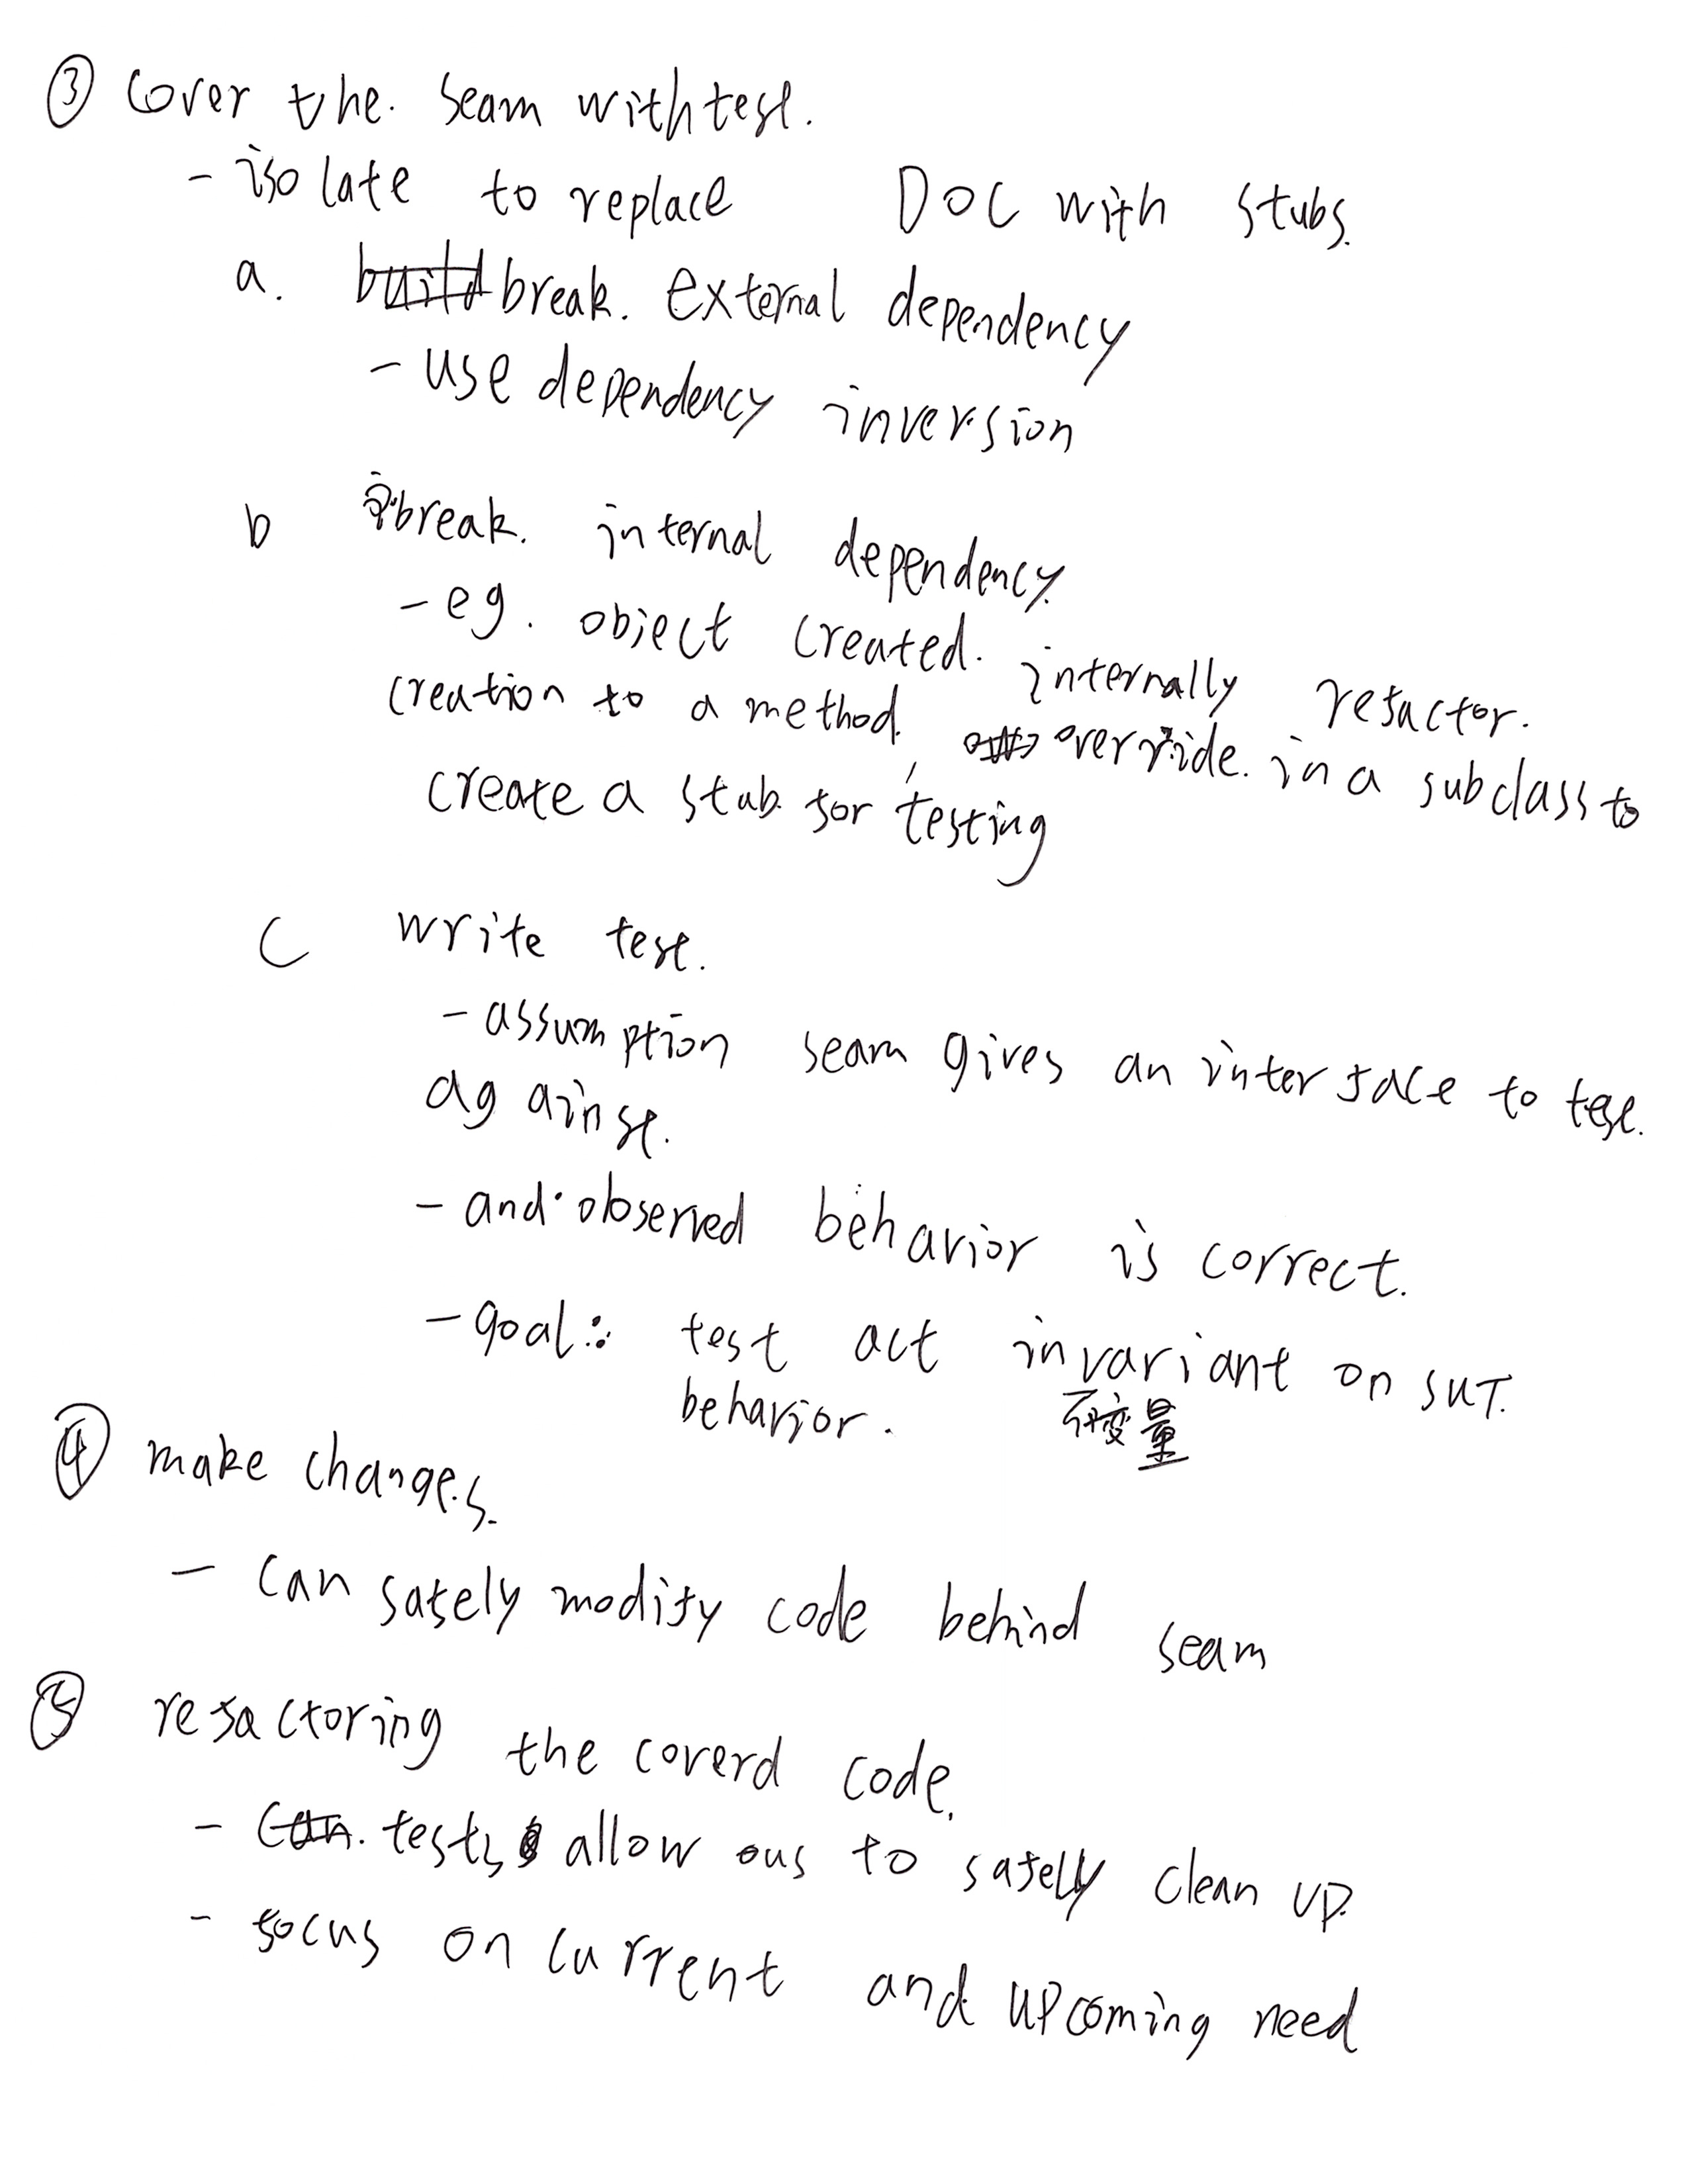 ③ Cover the. seam with test.
- isolate to replace DOC with stubs.
a. break. external dependency
- use dependency inversion
b break. internal dependency.
- eg. object created. internally refactor.
creation to a method, override. in a subclass to
create a stub for testing
C write test.
- assumption seam gives an interface to test.
against.
- and observed behavior is correct.
- goal: test act invariant on SUT.
behavior. 不变量
④ make changes.
- can safely modify code behind seam
⑤ refactoring the coverd code.
- tests allow ous to safely clean up.
- focus on current and upcoming need